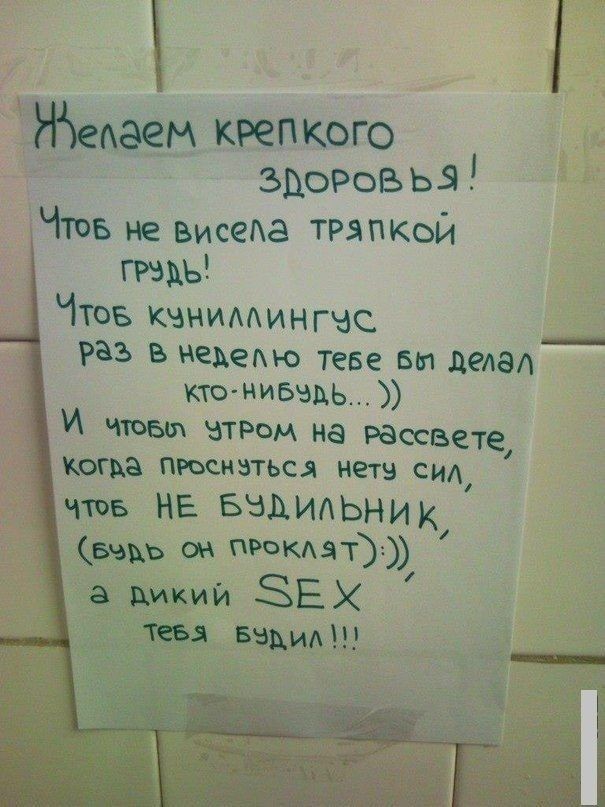 Желаем крепкого
здоровья!
Чтоб не висела тряпкой
грудь!
Чтоб куниллингус
раз в неделю тебе бы делал
кто-нибудь... ))
И чтобы утром на рассвете,
когда проснуться нету сил,
чтоб НЕ БУДИЛЬНИК,
(будь он проклят):)),
а дикий SEX
тебя будил!!!